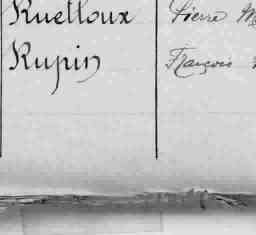 Ruelloux Pierre
Rupin François